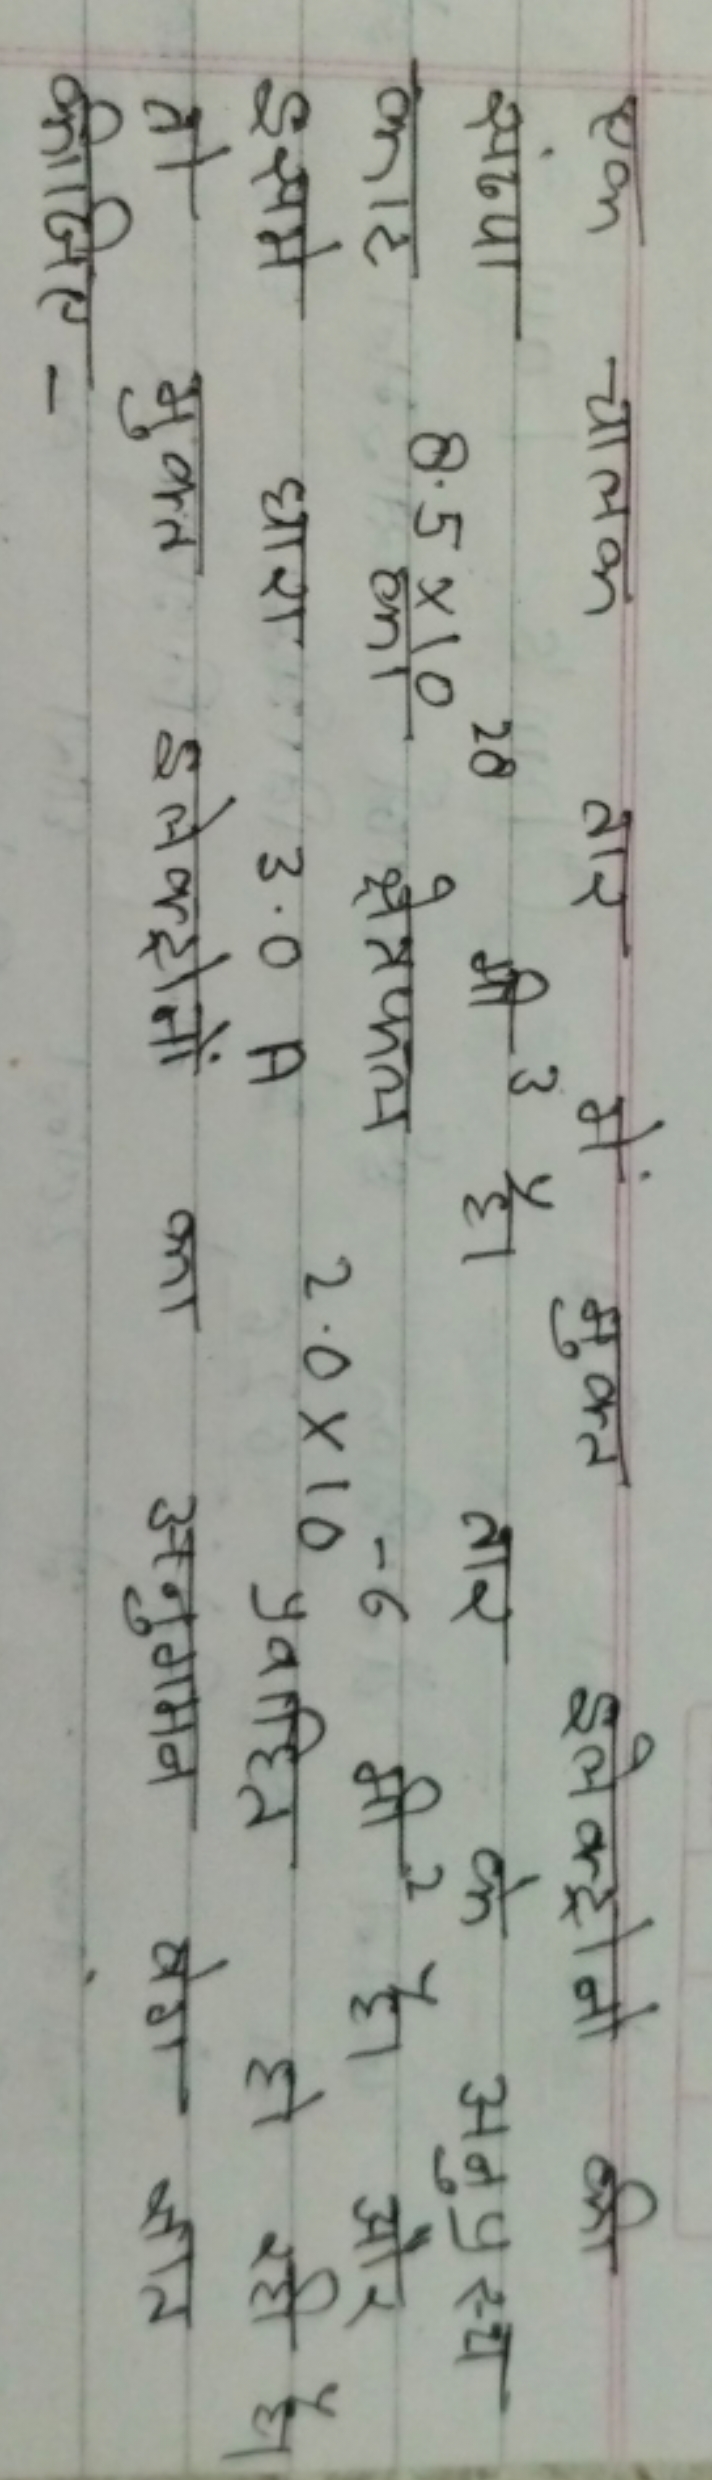 एक चालक तार में मुक्त इलेक्ट्रोनो की
संख्या 8.5 x 10²⁸ मी⁻³ है। तार के अनुप्रस्थ
काट का क्षेत्रफल 2.0 x 10⁻⁶ मी² है। और
इसमे धारा 3.0 A प्रवाहित हो रही है।
तो मुक्त इलेक्ट्रोनों का अनुगमन वेग ज्ञात
कीजिए -